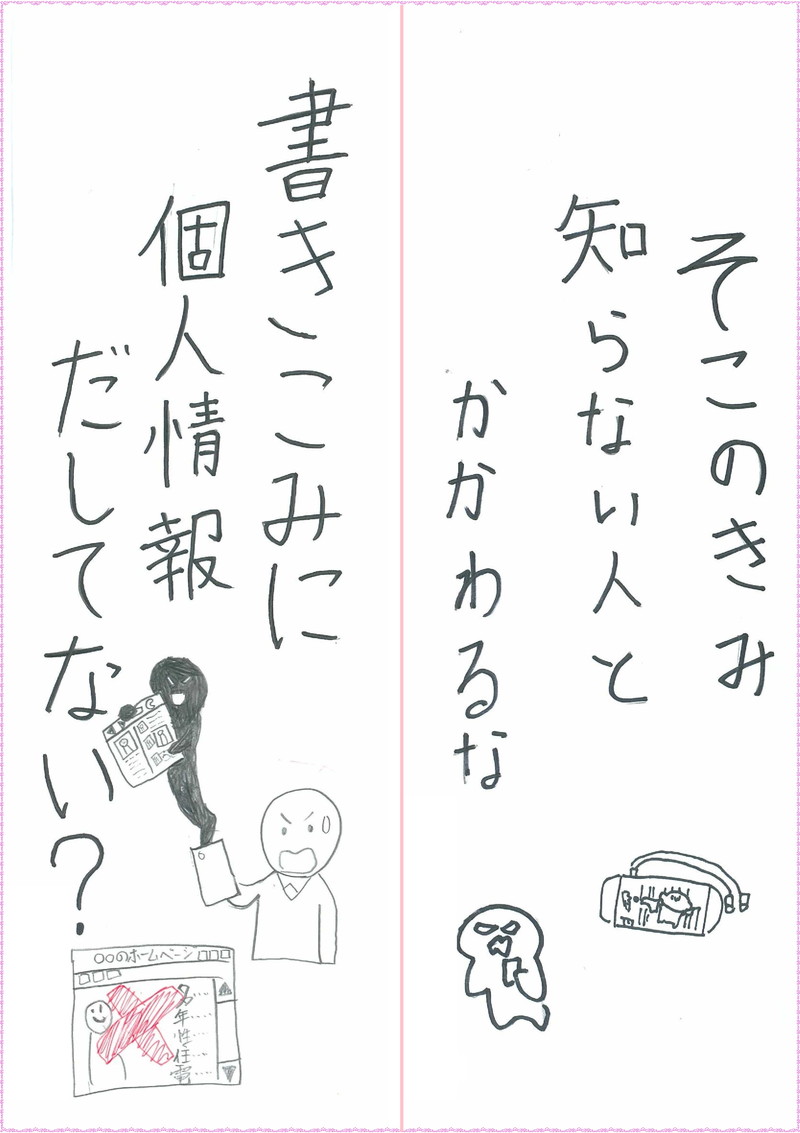 そこのきみ
知らない人と
かかわるな
書きこみに
個人情報
だしてない？
○○のホームページ
名…
年…
性…
住…
電…